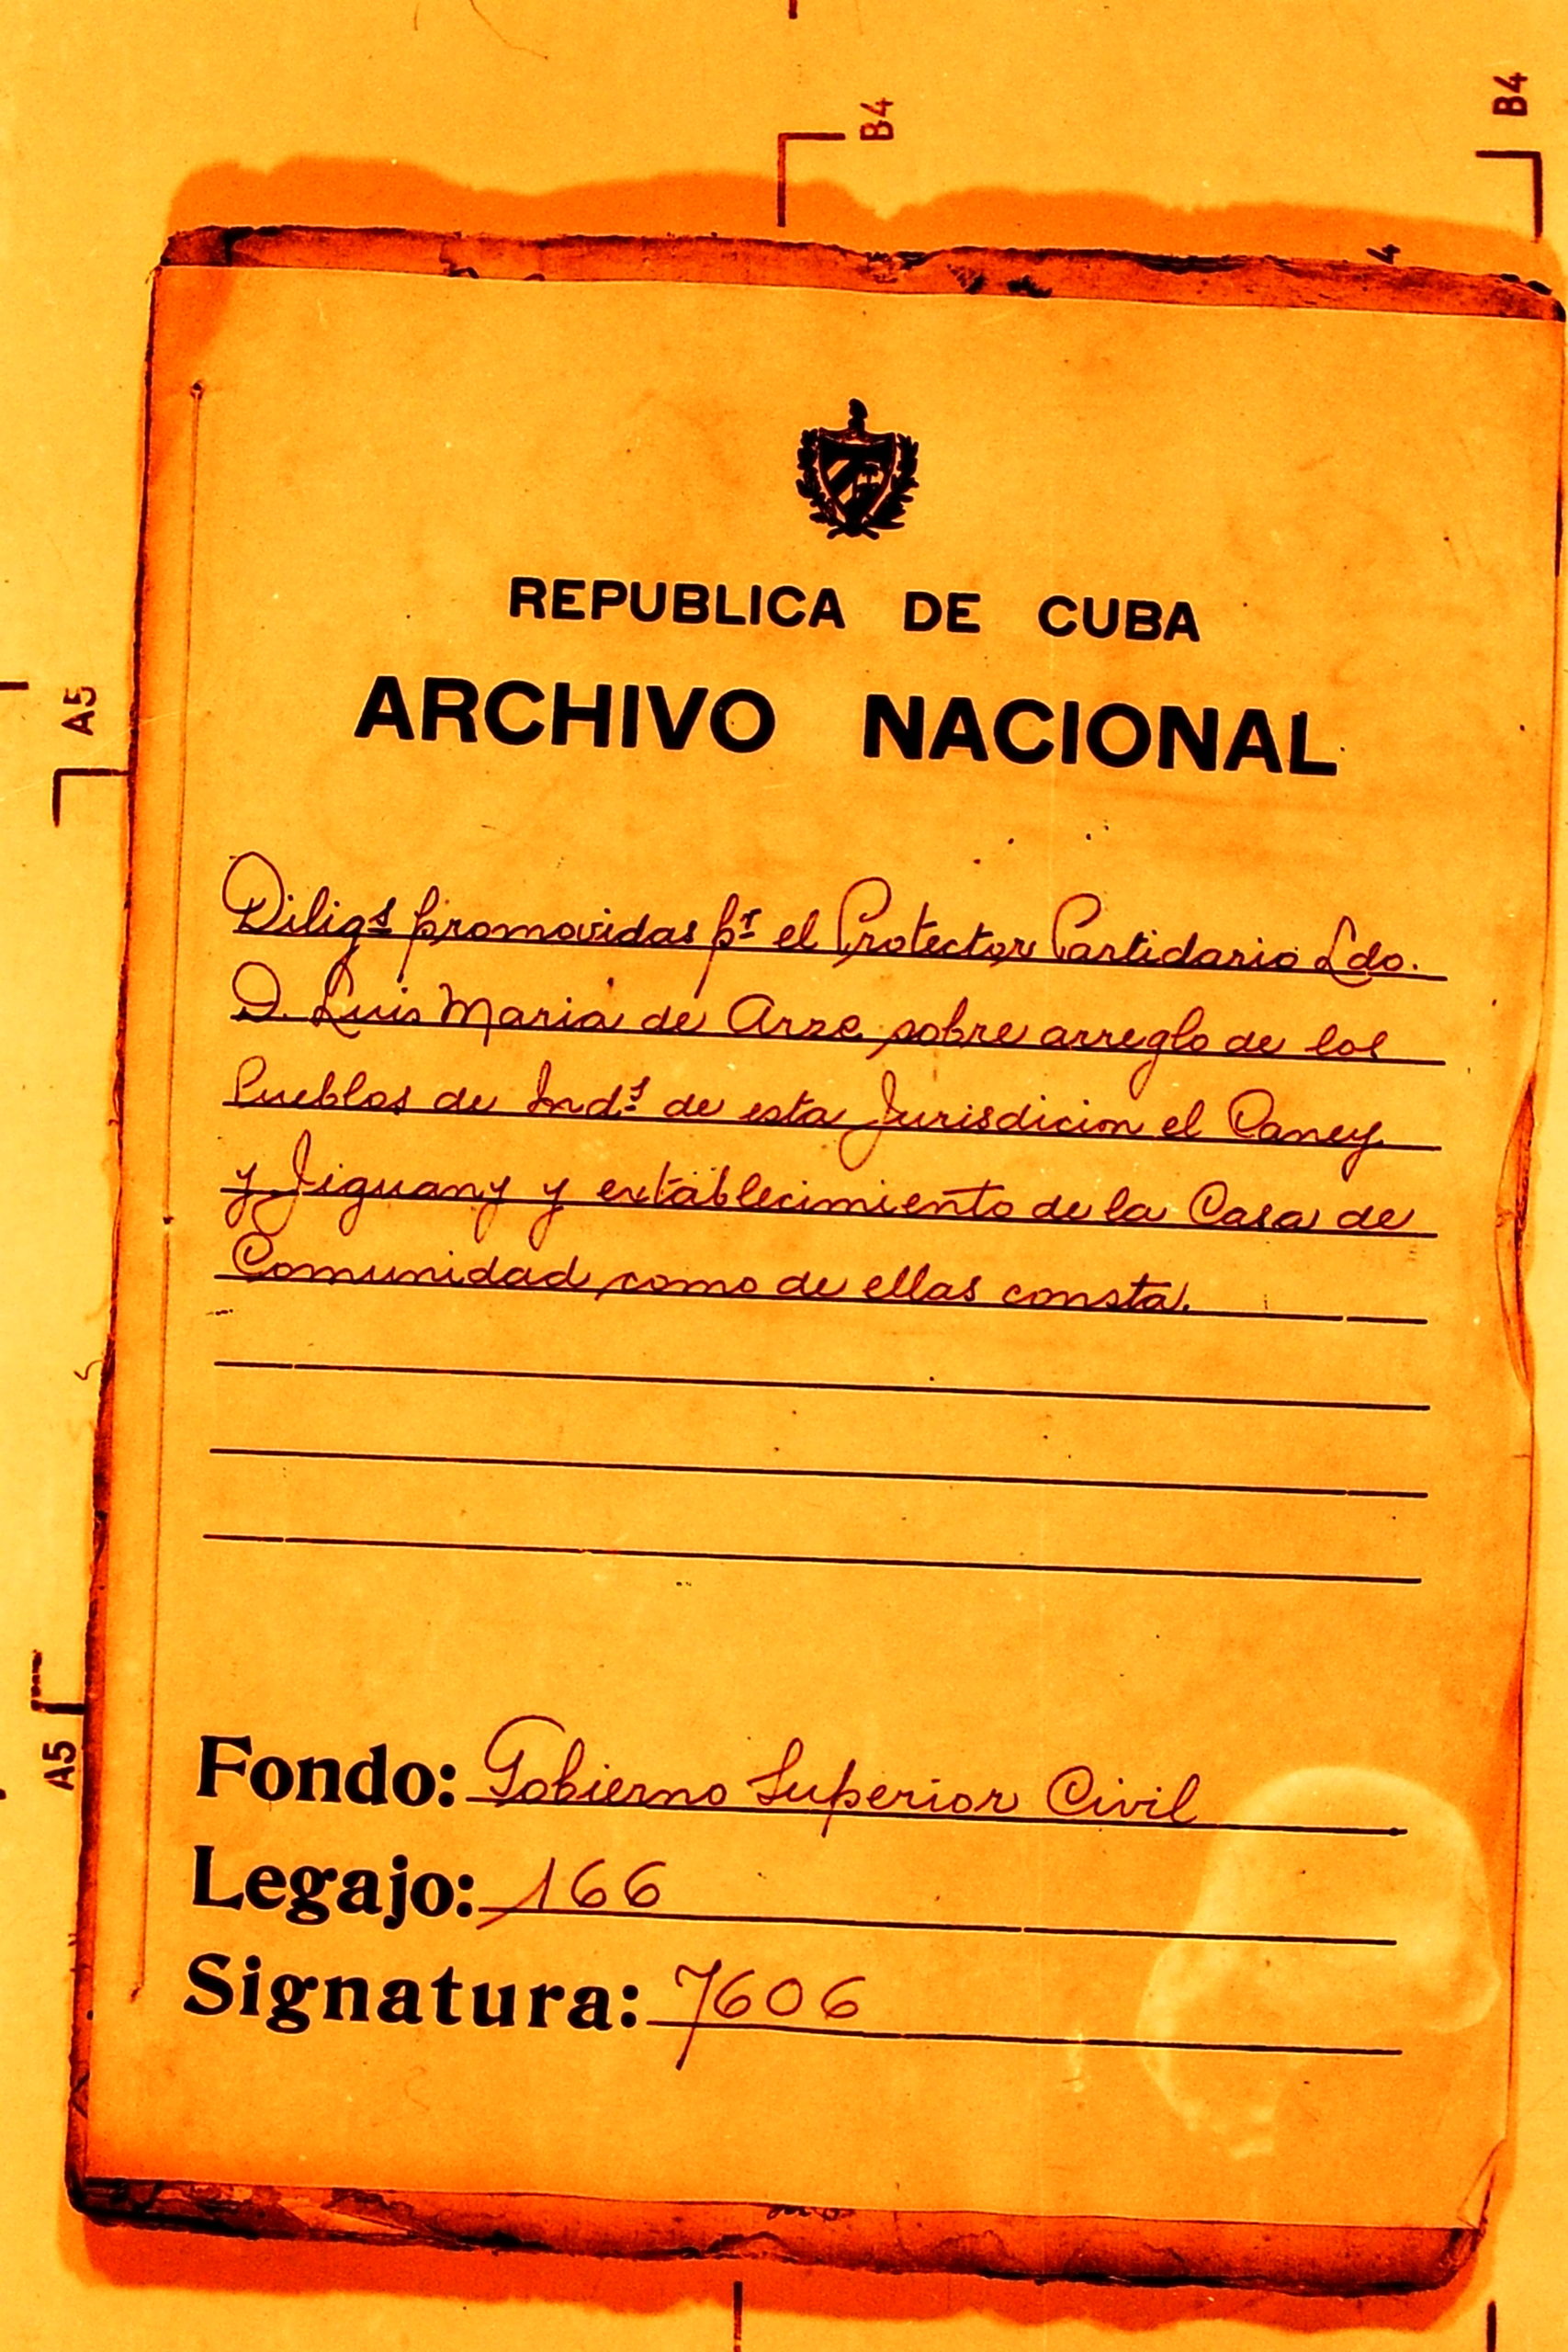 B4
B4
4
REPUBLICA DE CUBA
ARCHIVO NACIONAL
A5
Diligs promovidas pr el Protector Partidario Ldo.
D. Luis Maria de Arze sobre arreglo de los
Pueblos de Inds de esta Jurisdicion el Caney
y Jiguany y establecimiento de la Casa de
Comunidad como de ellas consta.
Fondo: Gobierno Superior Civil
Legajo: 166
Signatura: 7606
A5